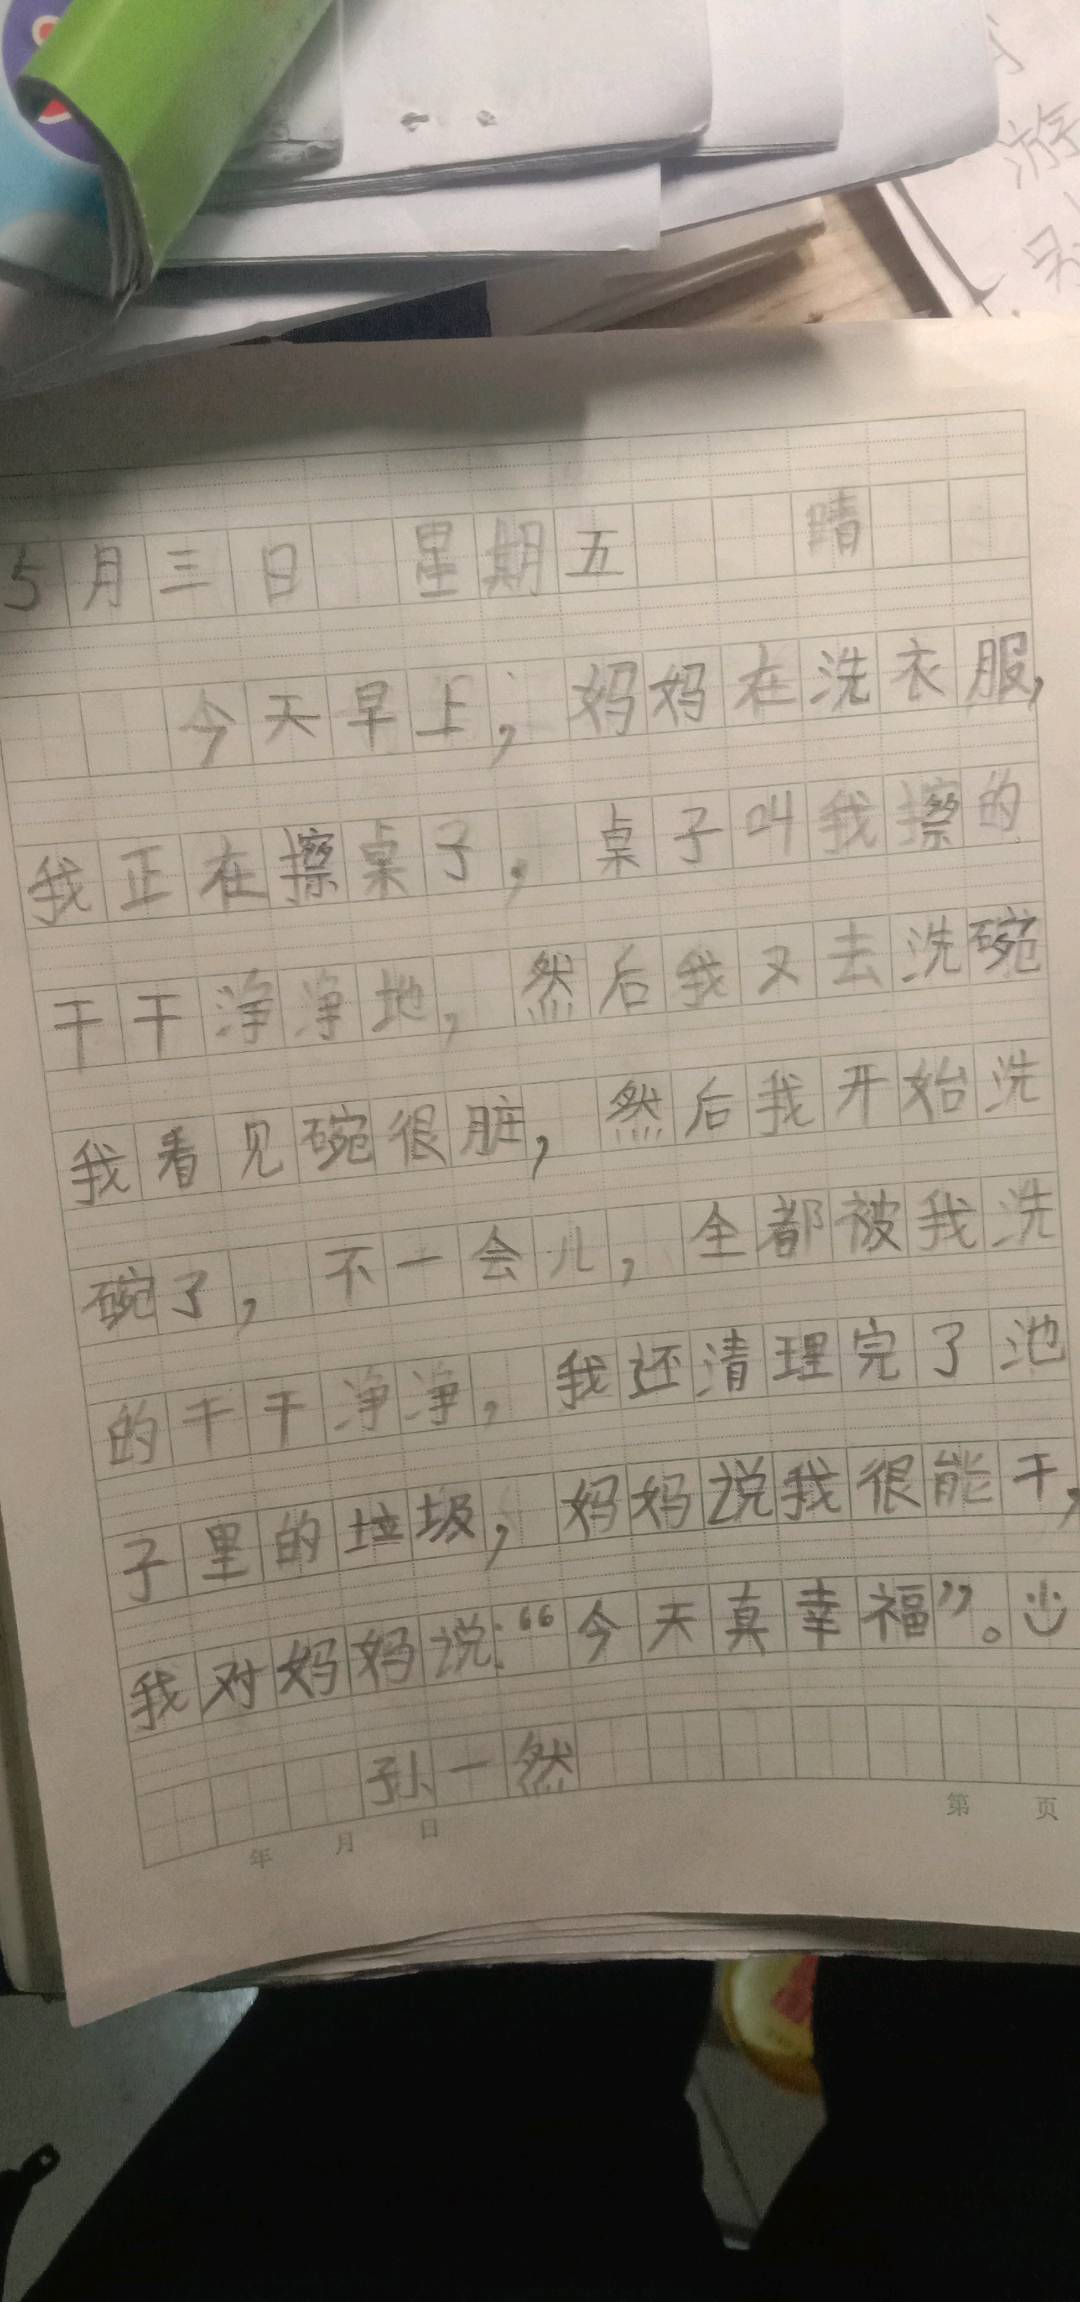 游
5月三日 星期五 晴
今天早上，妈妈在洗衣服，
我正在擦桌子，桌子叫我擦的
干干净净地，然后我又去洗碗
我看见碗很脏，然后我开始洗
碗了，不一会儿，全都被我洗
的干干净净，我还清理完了池
子里的垃圾，妈妈说我很能干，
我对妈妈说：“今天真幸福”。
孙一然
年 月 日 第 页